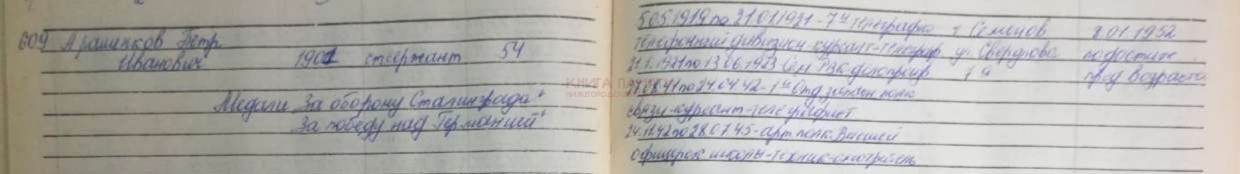 609
Петр
Иванович 1901 сержант 54
Медали За оборону Сталинграда"
За победу над Германией"
5.05.1919 по 21.01.1921 - 7й г. Семенов 8.01.1952
телефонный дивизион курсант-телеграф ул. Свердлова по достиже
21.1.1921 по 13.06.1923 Сем РВК делопроиз пред возраста
по 24.04.42 - 1й полк
связи курсант-телеграфист
24.11.42 по 28.07.45 - арт полк. Высшей
офицерск школы-техник-смотритель
КНИГА